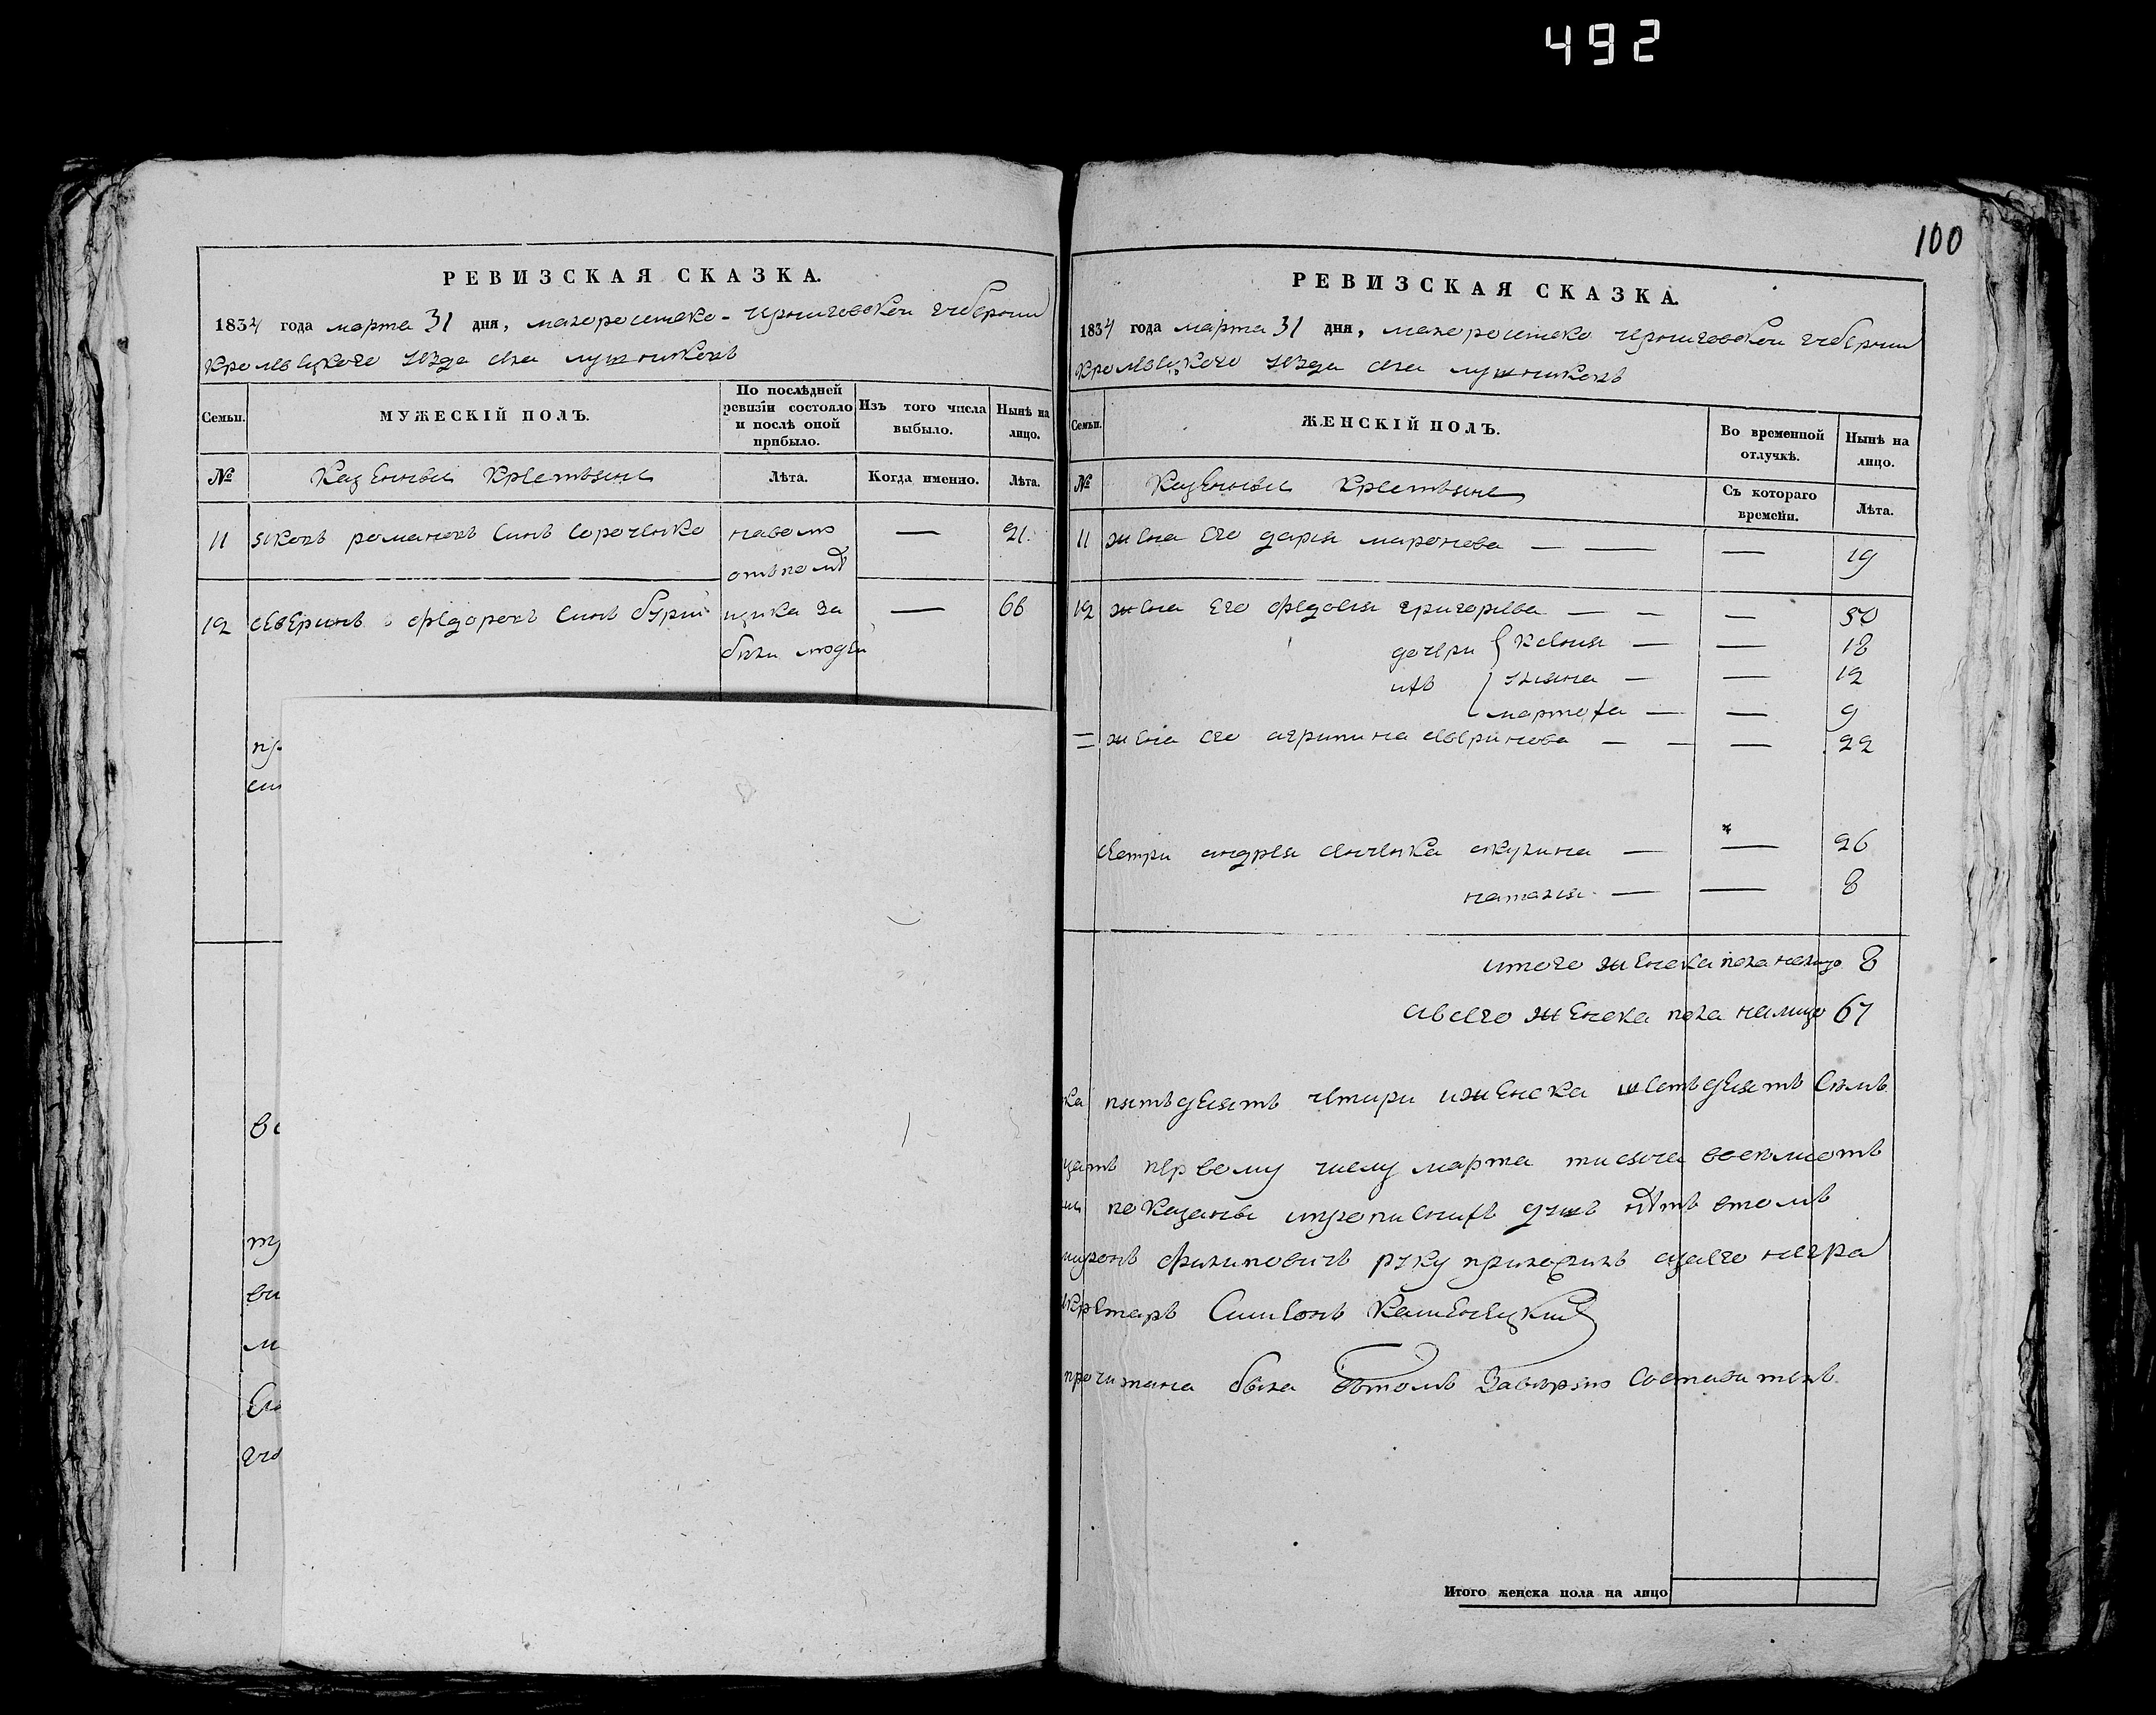 492
РЕВИЗСКАЯ СКАЗКА.
1834 года марта 31 дня, малоросийско-черниговской губернии
кролевецкого уезда села лушниковъ
Семьи.
МУЖЕСКІЙ ПОЛЪ.
По послѣдней ревизіи состояло и послѣ оной прибыло.
Изъ того числа выбыло.
Нынѣ на лицо.
№
Казенныи крестьяне
Лѣта.
Когда именно.
Лѣта.
11 яковъ романовъ синъ сороченко — 21.
12 северинъ федоровъ синъ — 66
людей
100
РЕВИЗСКАЯ СКАЗКА.
1834 года марта 31 дня, малоросийско черниговской губернии
кролевецкого уезда села лушниковъ
Семьи.
ЖЕНСКІЙ ПОЛЪ.
Во временной отлучкѣ.
Нынѣ на лицо.
№
Казенныи крестьяне
Съ котораго времени.
Лѣта.
11 жена его дария миронова — — — 19
12 жена его федосия григориева — — — 50
дочери ксения — — 18
ихъ улияна — — 12
марфа — — 9
= жена его агрипина северинова — — — 22
сестри андрея акулина — — 26
наталия — — 8
итого женска пола налицо 8
авсего женска пола налицо 67
пятьдесятъ четири иженска шестьдесятъ семъ
первому числу марта тисяча восемсотъ
показаны ипрописнихъ душъ нѣтъ втомъ
филиповичъ руку приложилъ
Симеонъ Каменецкий
прочитана была вътомъ Заверяю составителъ
Итого женска пола на лицо